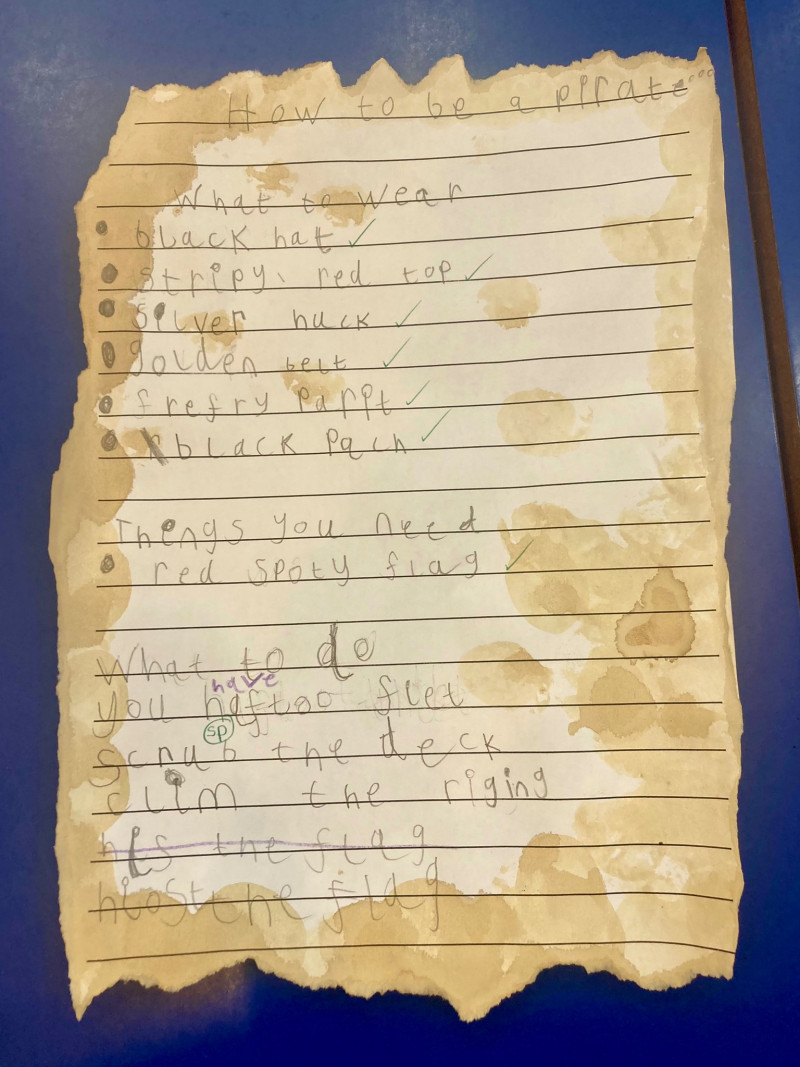 How to be a pirate...
What to wear
• black hat ✓
• stripy red top ✓
• Silver huck ✓
• golden belt ✓
• frefry Parit ✓
• black Pach ✓
Thengs you need
• red spoty flag ✓
What to do
have
you haftoo fiet
sp
scrub the deck
clim the riging
his the flag
hiost the flag